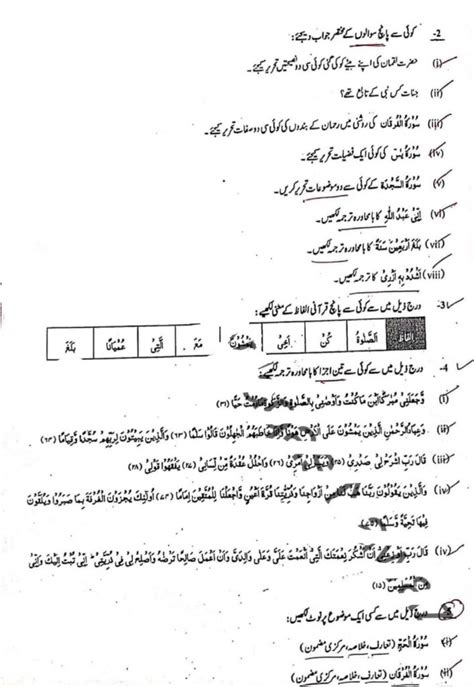 2- کوئی سے پانچ سوالوں کے مختصر جواب دیجئے:
(i) حضرت لقمان کی اپنے بیٹے کو کی گئی کوئی سی دو نصیحتیں تحریر کیجئے۔
(ii) جنات کس نبی کے تابع تھے؟
(iii) سُورَۃُ الْفُرْقَان کی روشنی میں رحمان کے بندوں کی کوئی سی دو صفات تحریر کیجئے۔
(iv) سُورَۃ یٰسٓ کی کوئی ایک فضیلت تحریر کیجئے۔
(v) سُورَۃُ السَّجْدَۃ کے کوئی سے دو موضوعات تحریر کریں۔
(vi) اِنِّیْ عَبْدُ اللّٰہِ کا بامحاورہ ترجمہ لکھیں۔
(vii) بَلَغَ اَرْبَعِیْنَ سَنَۃً کا بامحاورہ ترجمہ لکھیں۔
(viii) اشْدُدْ بِہٖٓ اَزْرِیْ کا ترجمہ لکھیں۔
3- درج ذیل میں سے کوئی سے پانچ قرآنی الفاظ کے معنی لکھیے:
الفاظ اَلصَّلٰوۃُ کُنْ اَشِی مَعَ اَلَّتِیْ عُمْیَانًا بَلَغَ
4- درج ذیل میں سے کوئی سے تین اجزا کا بامحاورہ ترجمہ لکھیے:
(i) وَّجَعَلَنِیْ مُبٰرَکًا اَیْنَ مَا کُنْتُ وَاَوْصٰنِیْ بِالصَّلٰوۃِ حَیًّا (۳۱)
(ii) وَعِبَادُ الرَّحْمٰنِ الَّذِیْنَ یَمْشُوْنَ عَلَی الْاَرْضِ خَاطَبَهُمُ الْجٰهِلُوْنَ قَالُوْا سَلٰمًا (۶۳) وَالَّذِیْنَ یَبِیْتُوْنَ لِرَبِّهِمْ سُجَّدًا وَّقِیَامًا (۶۴)
(iii) قَالَ رَبِّ اشْرَحْ لِیْ صَدْرِیْ (۲۵) اَمْرِیْ (۲۶) وَاحْلُلْ عُقْدَۃً مِّنْ لِّسَانِیْ (۲۷) یَفْقَهُوْا قَوْلِیْ (۲۸)
(iv) وَالَّذِیْنَ یَقُوْلُوْنَ رَبَّنَا هَبْ لَنَا مِنْ اَزْوَاجِنَا وَذُرِّیّٰتِنَا قُرَّۃَ اَعْیُنٍ وَّاجْعَلْنَا لِلْمُتَّقِیْنَ اِمَامًا (۷۴) اُولٰٓئِکَ یُجْزَوْنَ الْغُرْفَۃَ بِمَا صَبَرُوْا وَیُلَقَّوْنَ
فِیْهَا تَحِیَّۃً وَّسَلٰمًا (۷۵)
(iv) قَالَ رَبِّ اَوْزِعْنِیْ اَنْ اَشْکُرَ نِعْمَتَکَ الَّتِیْ اَنْعَمْتَ عَلَیَّ وَعَلٰی وَالِدَیَّ وَاَنْ اَعْمَلَ صَالِحًا تَرْضٰهُ وَاَصْلِحْ لِیْ فِیْ ذُرِّیَّتِیْ اِنِّیْ تُبْتُ اِلَیْکَ وَاِنِّیْ
الْمُسْلِمِیْنَ (۱۵)
درج ذیل میں سے کسی ایک موضوع پر نوٹ لکھیں:
(i) سُورَۃُ الْحَجّ (تعارف، خلاصہ، مرکزی مضمون)
(ii) سُورَۃُ الْفُرْقَان (تعارف، خلاصہ، مرکزی مضمون)